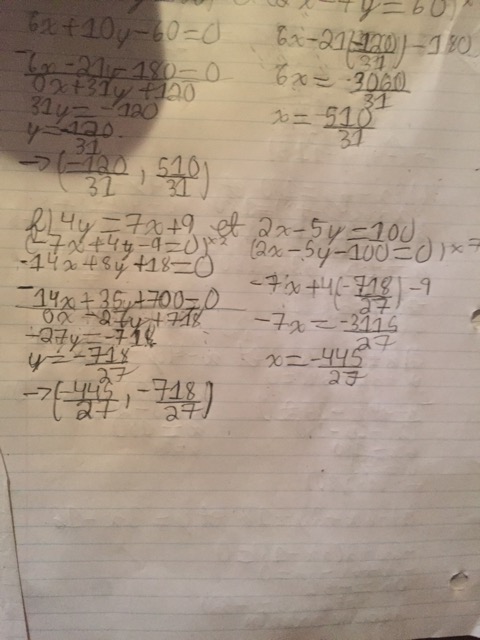 6x+10y-60=0
6x-21y-180=0
0x+31y+120
31y=-120
y=-120/31
→(-120/31, 510/31)
6x-21(-120/31)-180
6x=-3060/31
x=-510/31
f) 4y=7x+9 et 2x-5y=100
(-7x+4y-9=0)×2 (2x-5y-100=0)×7
-14x+8y+18=0
-14x+35y+700=0
0x-27y+718
-27y=-718
y=-718/27
→(-445/27, -718/27)
-7x+4(-718/27)-9
-7x=-3115/27
x=-445/27